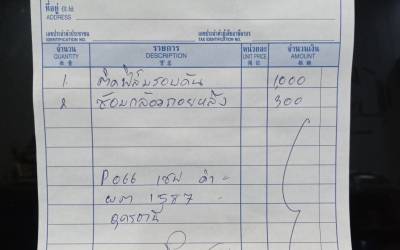 ที่อยู่
ADDRESS
เลขประจำตัวประชาชน เลขประจำตัวผู้เสียภาษีอากร
IDENTIFICATION NO. TAX IDENTIFICATION NO.
จำนวน รายการ หน่วยละ จำนวนเงิน
QUANTITY DESCRIPTION UNIT PRICE AMOUNT
1 ติดฟิล์มรอบคัน 1,000
2 ซ่อมกล้องถอยหลัง 300
ดำ
1587
อุดรธานี